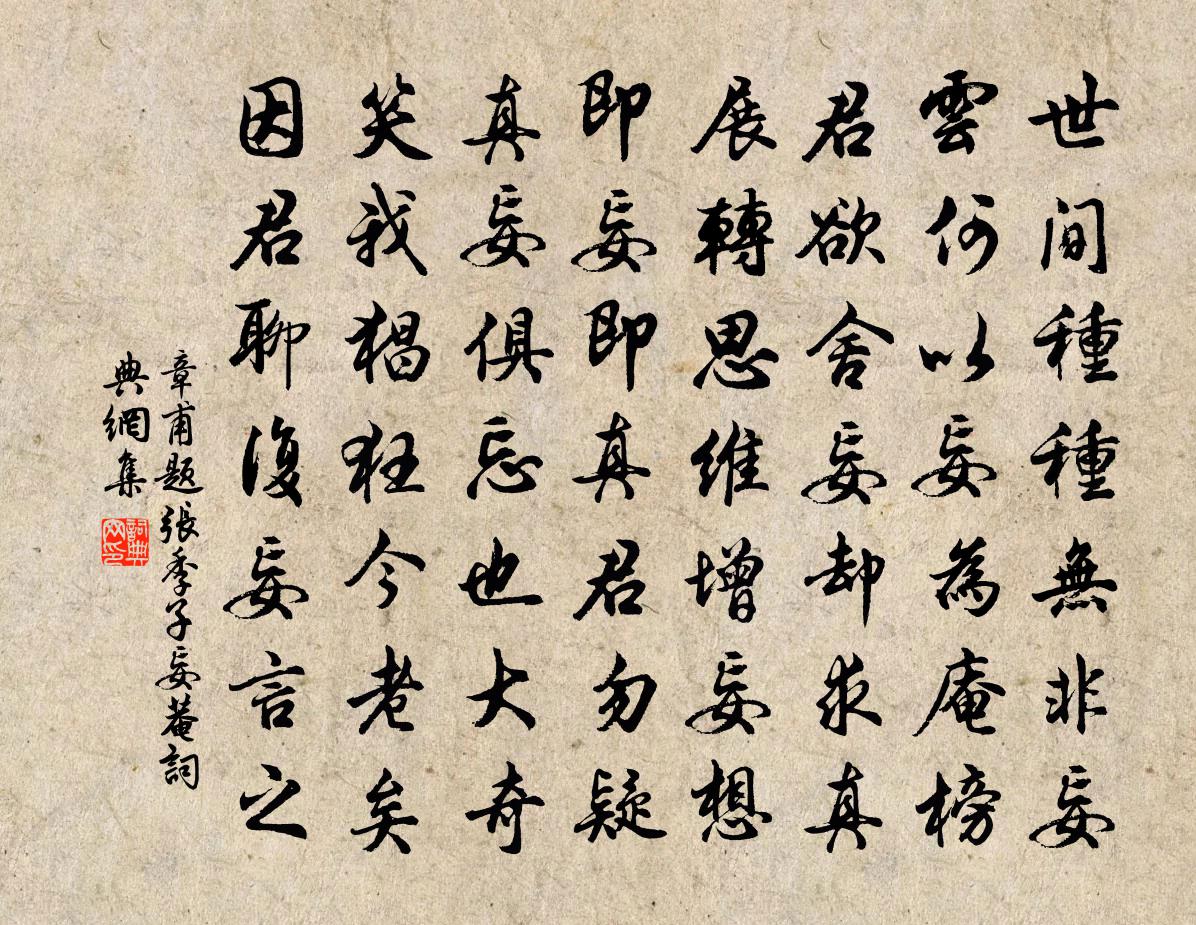 世間種種無非妄
雲何以妄為庵榜
君欲舍妄却求真
展轉思維增妄想
即妄即真君勿疑
真妄俱忘也大奇
笑我猖狂今老矣
因君聊復妄言之
章甫題張季子妄菴詞
典網集
詞典
网印